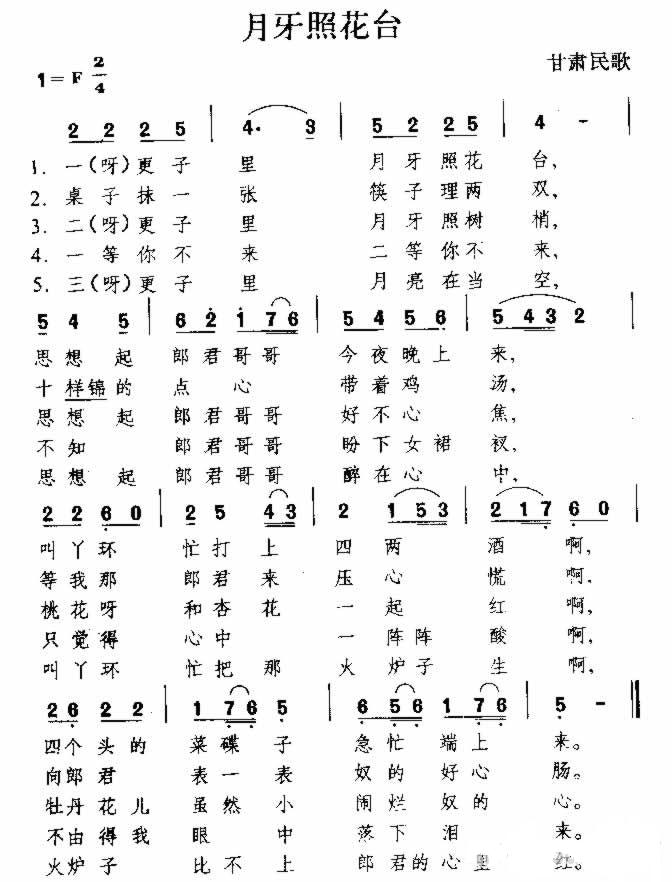 月牙照花台
甘肃民歌
1=F 2/4
2 2 2 5 | 4· 3 | 5 2 2 5 | 4 - |
1. 一(呀)更子里 月牙照花台,
2. 桌子抹一张 筷子理两双,
3. 二(呀)更子里 月牙照树梢,
4. 一等你不来 二等你不来,
5. 三(呀)更子里 月亮在当空,
5 4 5 | 6 2 1 7 6 | 5 4 5 6 | 5 4 3 2 |
思想起 郎君哥哥 今夜晚上来,
十样锦的 点心 带着鸡汤,
思想起 郎君哥哥 好不心焦,
不知 郎君哥哥 盼下女裙衩,
思想起 郎君哥哥 醉在心中,
2 2 6 0 | 2 5 4 3 | 2 1 5 3 | 2 1 7 6 0 |
叫丫环 忙打上 四两酒啊,
等我那 郎君来 压心慌啊,
桃花呀 和杏花 一起红啊,
只觉得 心中 一阵阵酸啊,
叫丫环 忙把那 火炉子生啊,
2 6 2 2 | 1 7 6 5 | 6 5 6 1 7 6 | 5 - ‖
四个头的 菜碟子 急忙端上来。
向郎君 表一表 奴的好心肠。
牡丹花儿 虽然小 闹烂奴的心。
不由得我 眼中 落下泪来。
火炉子 比不上 郎君的心里红。